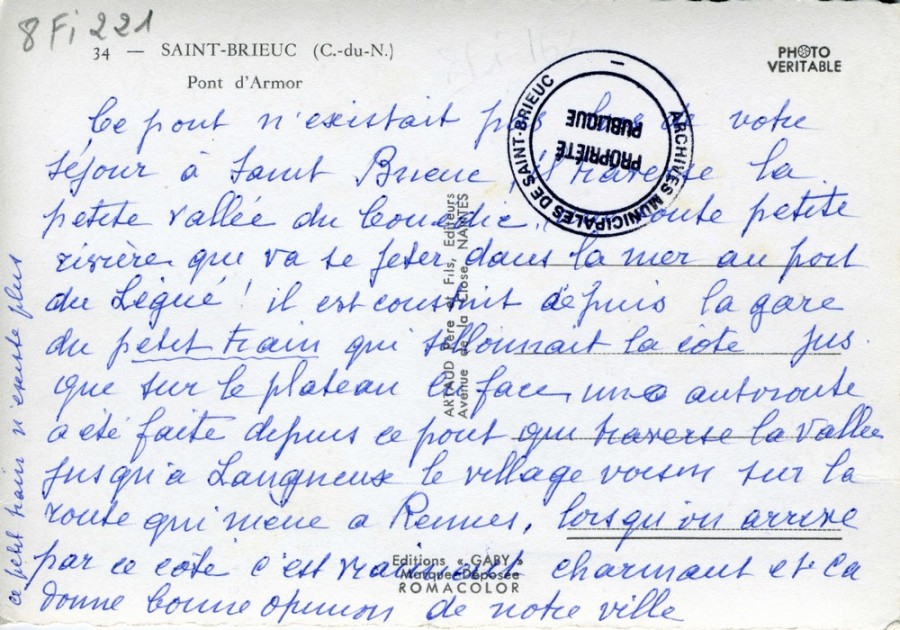 8 Fi 221
34 — SAINT-BRIEUC (C.-du-N.)
Pont d'Armor
PHOTO
VERITABLE
ARCHIVES MUNICIPALES DE SAINT-BRIEUC
PROPRIÉTÉ
PUBLIQUE
Ce pont n'existait pas lors de votre
séjour à Saint Brieuc, il traverse la
petite vallée du Gouédic, toute petite
rivière que va se jeter dans la mer au port
du Légué ! il est construit depuis la gare
du petit train qui sillonnait la côte jus
que sur le plateau en face, une autoroute
a été faite depuis ce pont que traverse la vallée
jusqu'à Langueux le village voisin sur la
route qui mène a Rennes, lorsqu'on arrive
par ce côté c'est vraiment charmant et ca
donne bonne opinion de notre ville
ce petit train n'existe plus
ARTAUD Père et Fils, Editeurs
Avenue de la Close, NANTES
Editions « GABY »
(Marque Déposée
ROMACOLOR